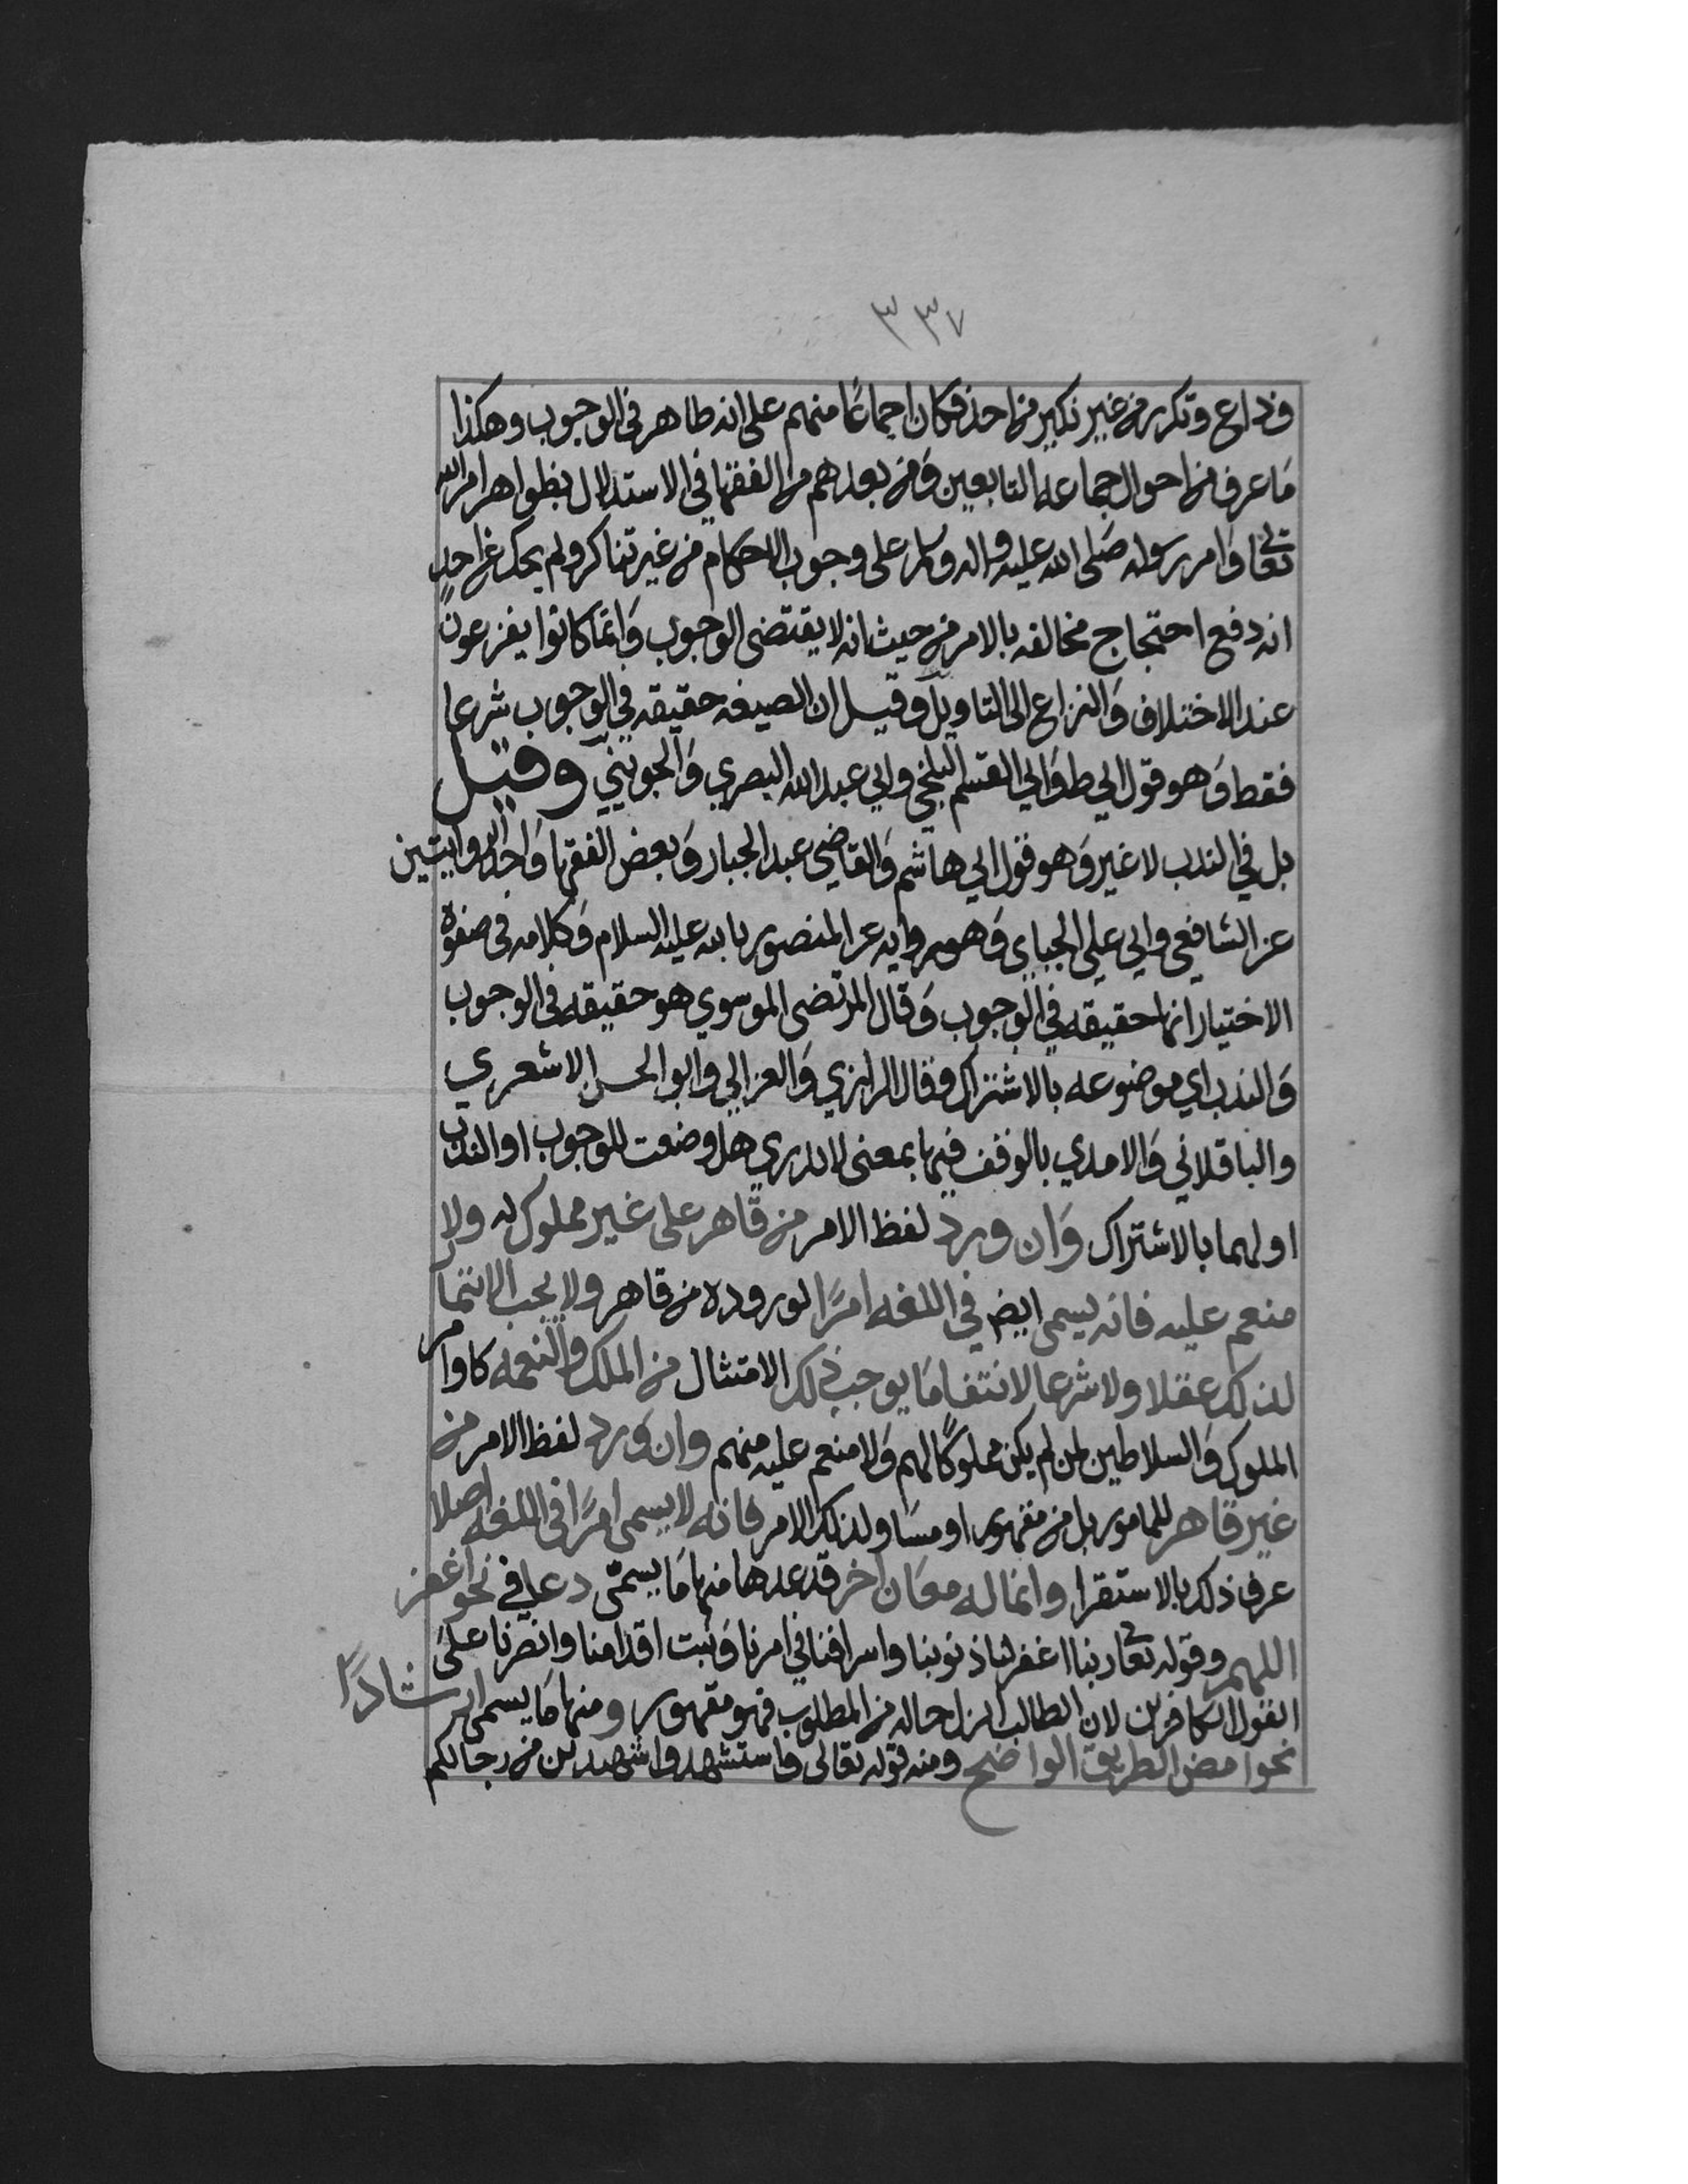 ٣٣٧
وذاع وتكرر من غير نكير من احد فكان اجماعًا منهم على انه ظاهر في الوجوب وهكذا
مَا عرف من احوال جماعه التابعين وَمن بعدهم من الفقها في الاستدلال بظواهر امر الله
تعالى وَامر رسوله صَلى الله عليه واله وسلم على وجوب الاحكام من غير تناكر ولم يحك عن احدٍ
انه دفع احتجاج مخالفه بالامر من حيث انه لا يقتضى الوجوب وَانما كانوا يفزعون
عند الاختلاف وَالنزاع الى التاويل وقيل ان الصيغه حقيقه في الوجوب شرعا
فقط وَهو قول ابي ط وَابي القسم البلخي وابي عبدالله البصري وَالجويني وقيل
بل في الندب لا غير وَهو قول ابي هاشم وَالقاضي عبد الجبار وَبعض الفقها وَاحد الروايتين
عن الشافعي وابي علي الجباي وَهو روايه عن المنصور بالله عليه السلام وَكلامه في صفوة
الاختيار انها حقيقه في الوجوب وَقال المرتضى الموسوي هو حقيقه في الوجوب
وَالندب اي موضوعه بالاشتراك وقال الرازي وَالغزالي وابو الحسن الاشعري
والباقلاني وَالامدي بالوقف فيها بمعنى لا ندري هل وضعت للوجوب او الندب
او لهما بالاشتراك وَان ورد لفظ الامر من قاهر على غير مملوك له ولا
منعم عليه فانه يسمى ايضا في اللغه امرًا لوروده من قاهر ولا يجب الائتمار
لذلك عقلا ولا شرعا لانتفا مَا يوجب ذلك الامتثال من الملك والنعمه كاوامر
الملوك وَالسلاطين لمن لم يكن مملوكًا لهم وَلا منعم عليه منهم وان وَرد لفظ الامر من
غير قاهر للمامور بل من مقهور او مسَاو لذلك الامر فانه لا يسمى امرًا في اللغه اصلا
عرف ذلك بالاستقرا وانما له معَان اخر قد عدها منها مَا يسمّى دعا في نحو اغفر
اللهم وقوله تعالى ربنا اغفر لنا ذنوبنا واسرافنا في امرنا وَثبت اقدامنا وانصرنا علىَ
القول الكافرين لان الطالب انزل حاله من المطلوب فهو مقهور ومنها مَا يسمى ارشادًا
نحو امض الطريق الواضح ومنه قوله تعالى فاستشهدوا شهيدين من رجالكم